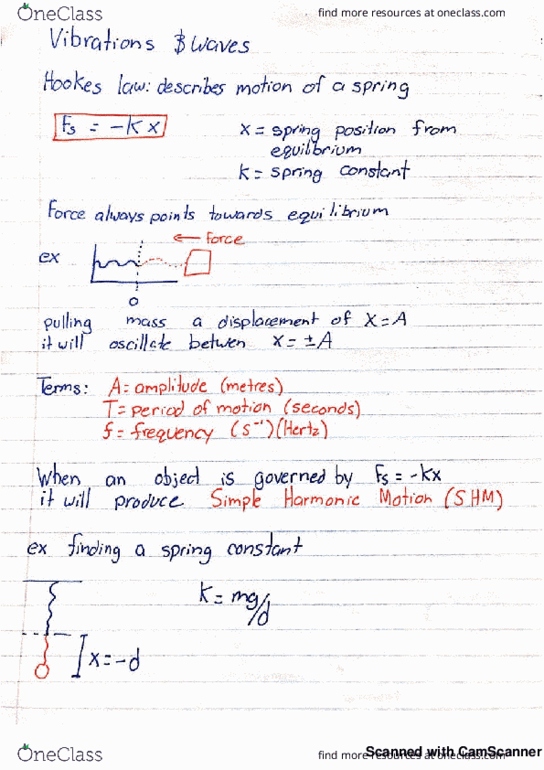 OneClass
find more resources at oneclass.com
Vibrations & Waves
Hookes law: describes motion of a spring
Fs = -K x
x = spring position from
equilbrium
k = spring constant
Force always points towards equilibrium
← Force
ex
0
pulling mass a displacement of x=A
it will oscillate betwen x = ±A
Terms: A = amplitude (metres)
T = period of motion (seconds)
f = frequency (s⁻¹)(Hertz)
When an object is governed by Fs = -kx
it will produce Simple Harmonic Motion (SHM)
ex finding a spring constant
K = mg/d
x = -d
OneClass
find more resources at oneclass.com
Scanned with CamScanner